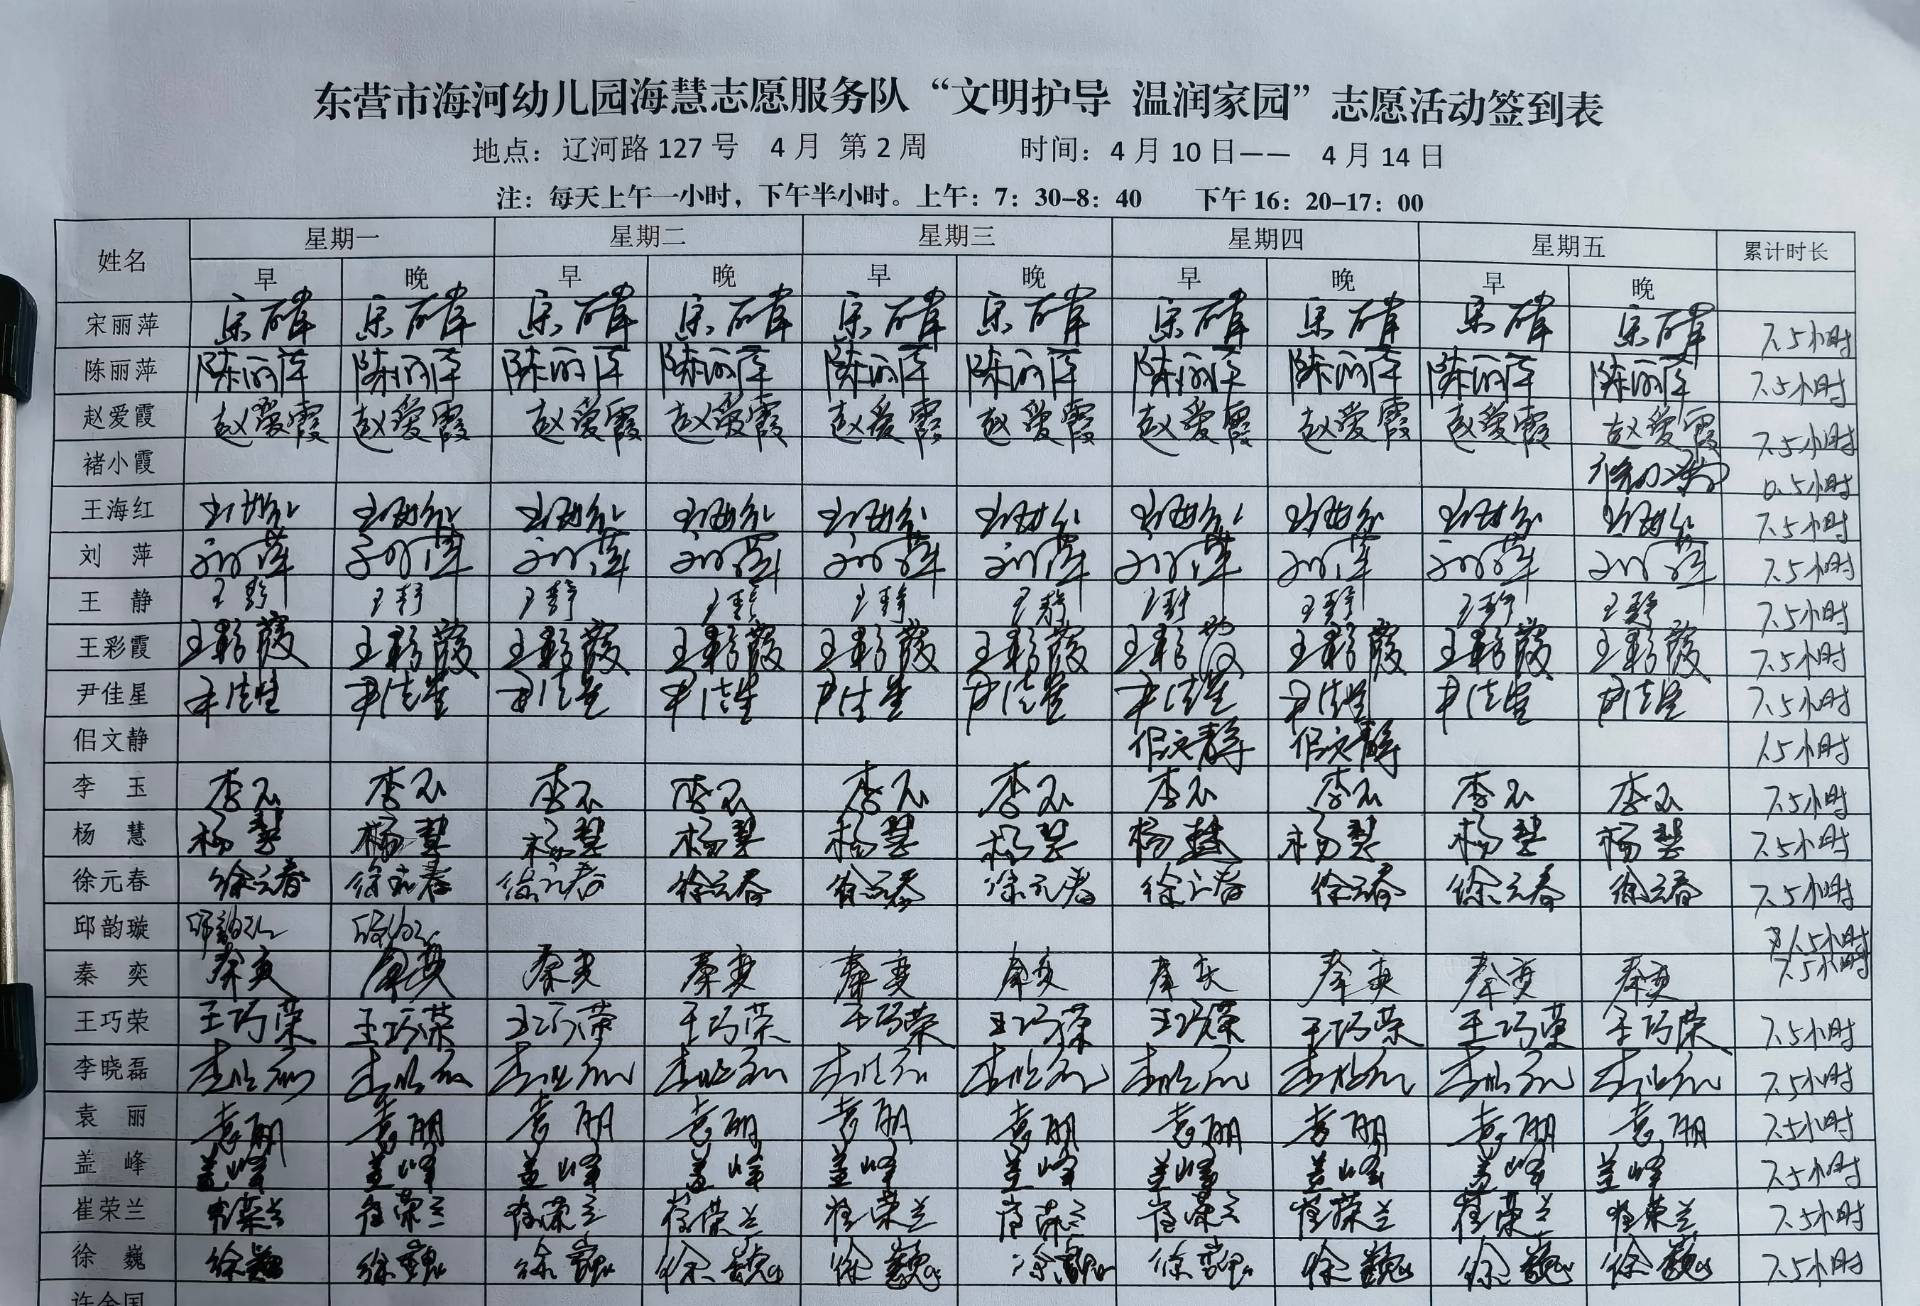 东营市海河幼儿园海慧志愿服务队“文明护导 温润家园”志愿活动签到表
地点：辽河路 127 号 4 月 第 2 周 时间：4 月 10 日—— 4 月 14 日
注：每天上午一小时，下午半小时。上午：7：30-8：40 下午 16：20-17：00
姓名 星期一 星期二 星期三 星期四 星期五 累计时长
早 晚 早 晚 早 晚 早 晚 早 晚
宋丽萍 7.5小时
陈丽萍 陈丽萍 陈丽萍 陈丽萍 陈丽萍 陈丽萍 陈丽萍 陈丽萍 陈丽萍 陈丽萍 陈丽萍 7.5小时
赵爱霞 赵爱霞 赵爱霞 赵爱霞 赵爱霞 赵爱霞 赵爱霞 赵爱霞 赵爱霞 赵爱霞 赵爱霞 7.5小时
褚小霞 0.5小时
王海红 7.5小时
刘 萍 刘萍 刘萍 刘萍 刘萍 刘萍 刘萍 刘萍 刘萍 刘萍 刘萍 7.5小时
王 静 王静 王静 王静 王静 王静 王静 王静 王静 王静 王静 7.5小时
王彩霞 王彩霞 王彩霞 王彩霞 王彩霞 王彩霞 王彩霞 王彩霞 王彩霞 王彩霞 王彩霞 7.5小时
尹佳星 尹佳星 尹佳星 尹佳星 尹佳星 尹佳星 尹佳星 尹佳星 尹佳星 尹佳星 尹佳星 7.5小时
佀文静 佀文静 佀文静 1.5小时
李 玉 李玉 李玉 李玉 李玉 李玉 李玉 李玉 李玉 李玉 李玉 7.5小时
杨 慧 杨慧 杨慧 杨慧 杨慧 杨慧 杨慧 杨慧 杨慧 杨慧 杨慧 7.5小时
徐元春 徐元春 徐元春 徐元春 徐元春 徐元春 徐元春 徐元春 徐元春 徐元春 徐元春 7.5小时
邱韵璇 1.5小时
秦 奕 秦奕 秦奕 秦奕 秦奕 秦奕 秦奕 秦奕 秦奕 秦奕 秦奕 7.5小时
王巧荣 王巧荣 王巧荣 王巧荣 王巧荣 王巧荣 王巧荣 王巧荣 王巧荣 王巧荣 王巧荣 7.5小时
李晓磊 7.5小时
袁 丽 袁丽 袁丽 袁丽 袁丽 袁丽 袁丽 袁丽 袁丽 袁丽 袁丽 7.5小时
盖 峰 盖峰 盖峰 盖峰 盖峰 盖峰 盖峰 盖峰 盖峰 盖峰 盖峰 7.5小时
崔荣兰 崔荣兰 崔荣兰 崔荣兰 崔荣兰 崔荣兰 崔荣兰 崔荣兰 崔荣兰 崔荣兰 崔荣兰 7.5小时
徐 巍 徐巍 徐巍 徐巍 徐巍 徐巍 徐巍 徐巍 徐巍 徐巍 徐巍 7.5小时